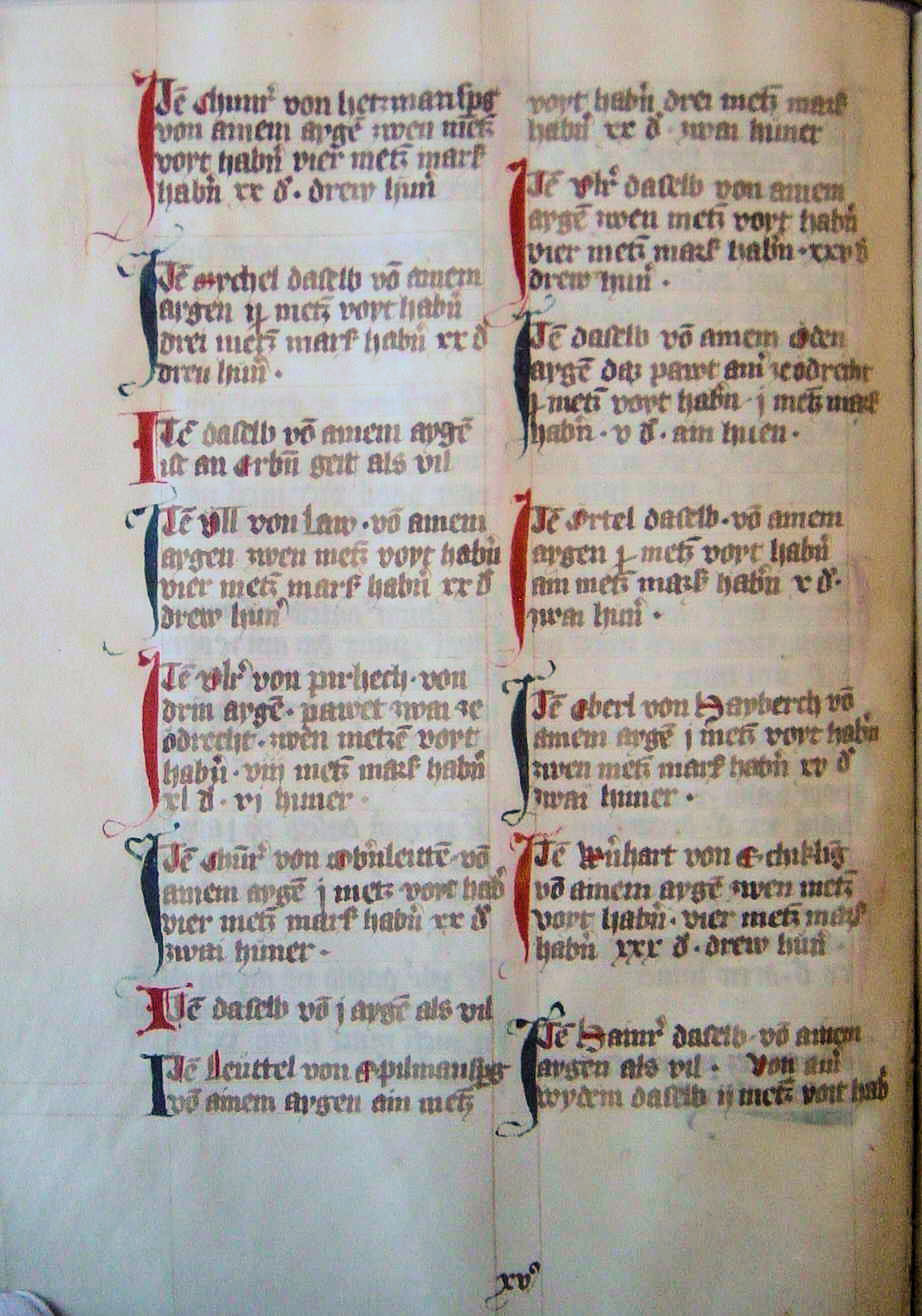 Itē Chunr̄ von herzmanspg
von ainem aygē zwen metȝ
voyt habn̄ vier metȝ mark
habn̄ xx d᷎ · drew hun̄
Itē Mychel daselb vō ainem
aygen ij metȝ voyt habn̄
drei metȝ mark habn̄ xx d᷎
dreu hun̄ ·
Itē daselb vō ainem aygē
ist an Erbn̄ geit als vil
Itē Vll von Law · vō ainem
aygen zwen metȝ voyt habn̄
vier metȝ mark habn̄ xx d᷎
drew hun̄
Itē Vlr̄ von pirhech · von
drin aygē · pawet zwai ze
odrecht · zwen metzē voyt
habn̄ · viij metȝ mark habn̄
xl d᷎ · vj huner ·
Itē Chūnr̄ von Obn̄leutē · vō
ainem aygē j metȝ voyt hab̄
vier metȝ mark habn̄ xx d᷎
zwai huner ·
Itē daselb vō j aygē als vil
Itē Leuttel von Spilmanspg
vō ainem aygen ain metȝ
voyt habn̄ drei metȝ mark
habn̄ xx d᷎ · zwai huner
Itē Vlr̄ daselb von ainem
aygē zwen metȝ voyt habn̄
vier metȝ mark habn̄ · xxv d᷎
drew hun̄ ·
Itē daselb vō ainem Oden
aygē daz pawt ain̄ ze odrecht
metȝ voyt habn̄ · j metȝ mark
habn̄ · v d᷎ · ain huen ·
Itē Ortel daselb · vō ainem
aygen j metȝ voyt habn̄
ain metȝ mark habn̄ x d᷎ ·
zwai hun̄ ·
Itē Eberl von Hayberch vō
ainem aygē j metȝ voyt habn̄
zwen metȝ mark habn̄ xv d᷎
zwai huner ·
Itē Wn̄hart von Schiklīg
vō ainem aygē zwen metȝ
voyt habn̄ · vier metȝ mark
habn̄ xxx d᷎ · drew hun̄ ·
Itē Hainr̄ daselb · vō ainem
aygen als vil · Von ain̄
wydem daselb ij metȝ voit hab̄
xv